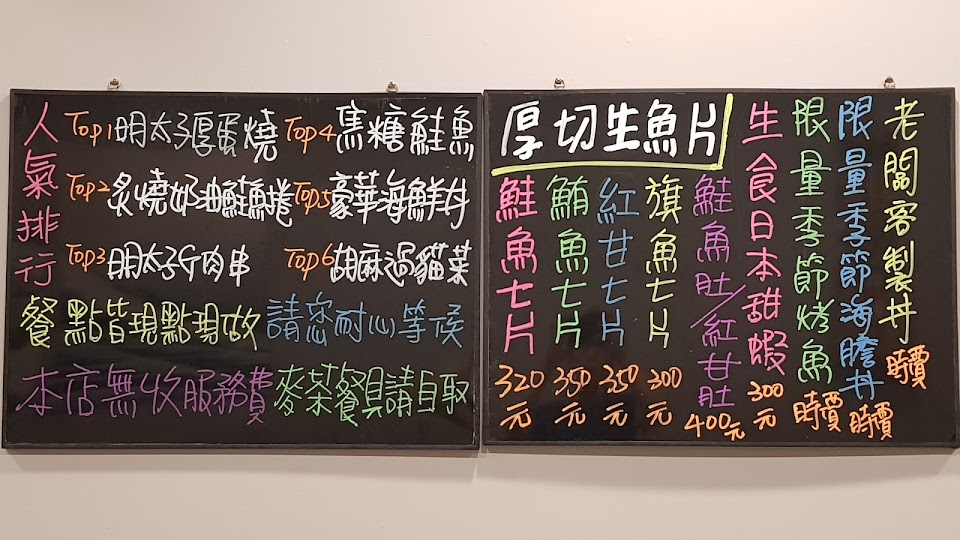 人氣排行
Top1 明太子厚蛋燒
Top2 炙燒奶油鮭魚捲
Top3 明太子斤肉串
Top4 焦糖鮭魚
Top5 豪華海鮮丼
Top6 胡麻過貓菜
餐點皆現點現做 請您耐心等候
本店無收服務費 麥茶餐具請自取
厚切生魚片
鮭魚七片 320元
鮪魚七片 350元
紅甘七片 350元
旗魚七片 200元
鮭魚肚/紅甘肚 400元
生食日本甜蝦 300元
限量季節烤魚 時價
限量季節海膽丼 時價
老闆客製丼 時價